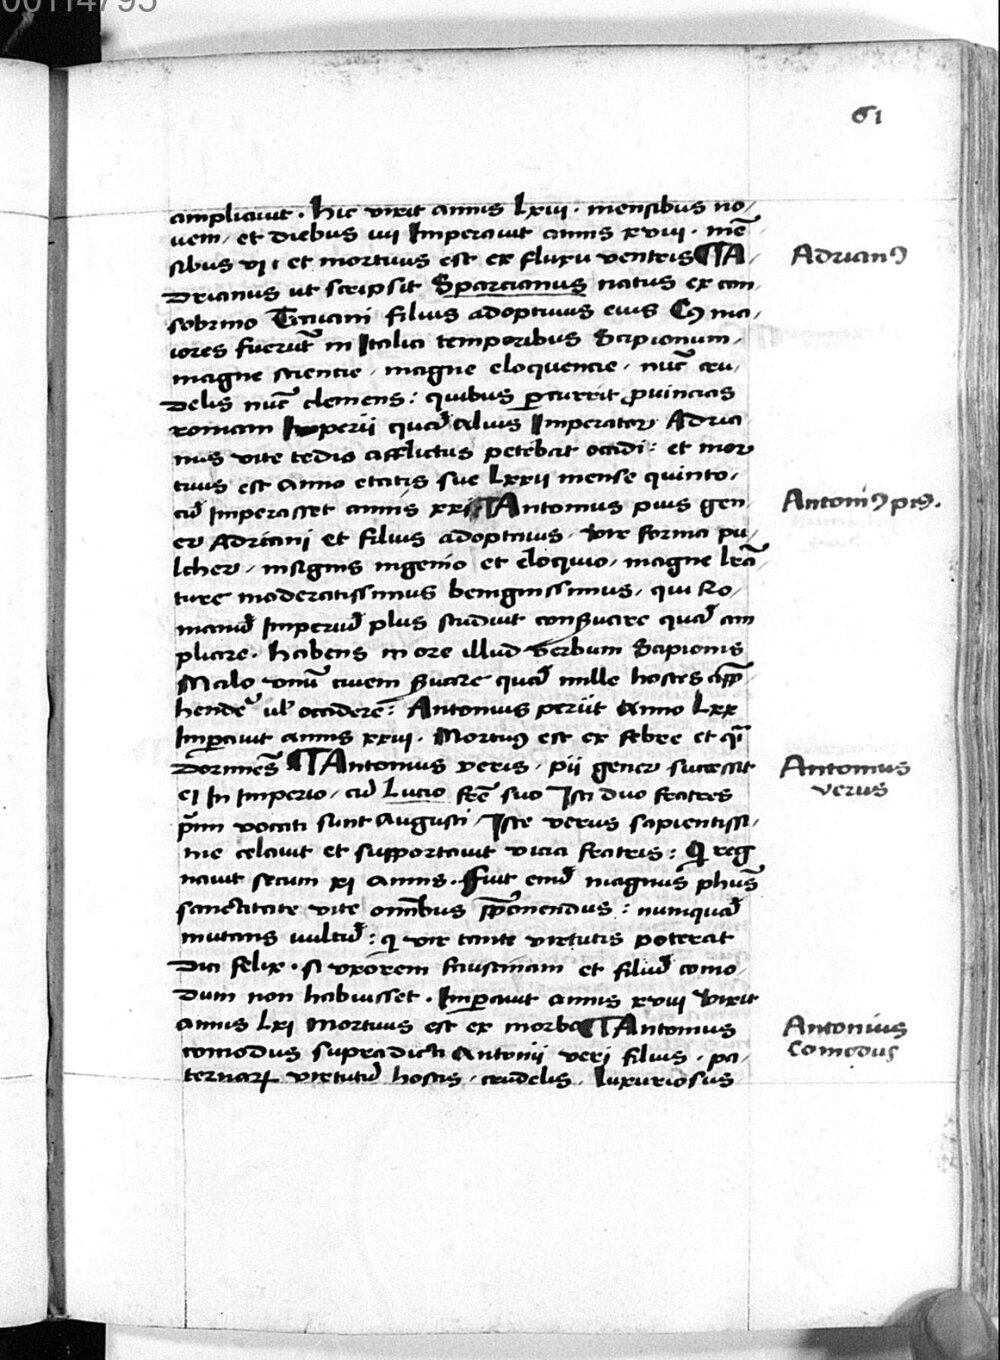 00114795
61
ampliauit . hic vixit annis Lxiii . mensibus no/
uem / et diebus iiii Imperauit annis xviii . mē
sibus vi : et mortuus est ex fluxu ventris ¶ A /
Adrianꝯ
drianus ut scripsit Sparcianus natus ex con /
sobrino Traiani filius adoptiuus eius Cꝯ ma /
iores fuerūt in Italia temporibus Scipionum /
magne scientie / magne eloquencie / nūc cru /
delis nūc clemens : quibus ꝑcurrit ꝓuincias
romani Imperii quā alius Imperator Adria
nus vite tedio afflictus petebat occidi : et mor
tuus est Anno etatis sue Lxxii mense quinto /
cū Imperasset annis xxi ¶ Antonius pius gen /
Antoniꝯ piꝯ.
er Adriani et filius adoptiuus / vir forma pu /
lcher / insignis ingenio et eloquio / magne lrā /
ture moderatissimus benignissimus / qui Ro /
manū Imperiū plus studuit conseruare quā am
pliare . habens in ore illud verbum Scipionis
Malo vnū ciuem seruare quā mille hostes app̄
hendē uł occidere : Antonius periit Anno Lxx
Imꝑauit annis xxiii . Mortuꝯ est ex febre et q̄ı
dormiēs ¶ Antonius verus / pii gener successit
Antonius
verus
ei In Imperio / cū Lucio frē suo Isti duo fratres
p̄mi vocati sunt Augusti / Iste verus sapientissi /
me celauit et supportauit vicia fratris : Qi reg
nauit secum xi annis . Fuit enī magnus phūs
sanctitate vite omībus p̄ponendus : nunquā
mutans uultū : q vir tante virtutis poterat
dici felix . si vxorem faustinam et filiū como /
dum non habuisset . Imꝑauit annis xviii vixit
annis Lxi Mortuus est ex morbo ¶ Antonius
Antonius
Comodus
comodus supradicti Antonii veri filius . pa /
ternarꝝ virtutū hostis / crudelis / luxuriosus